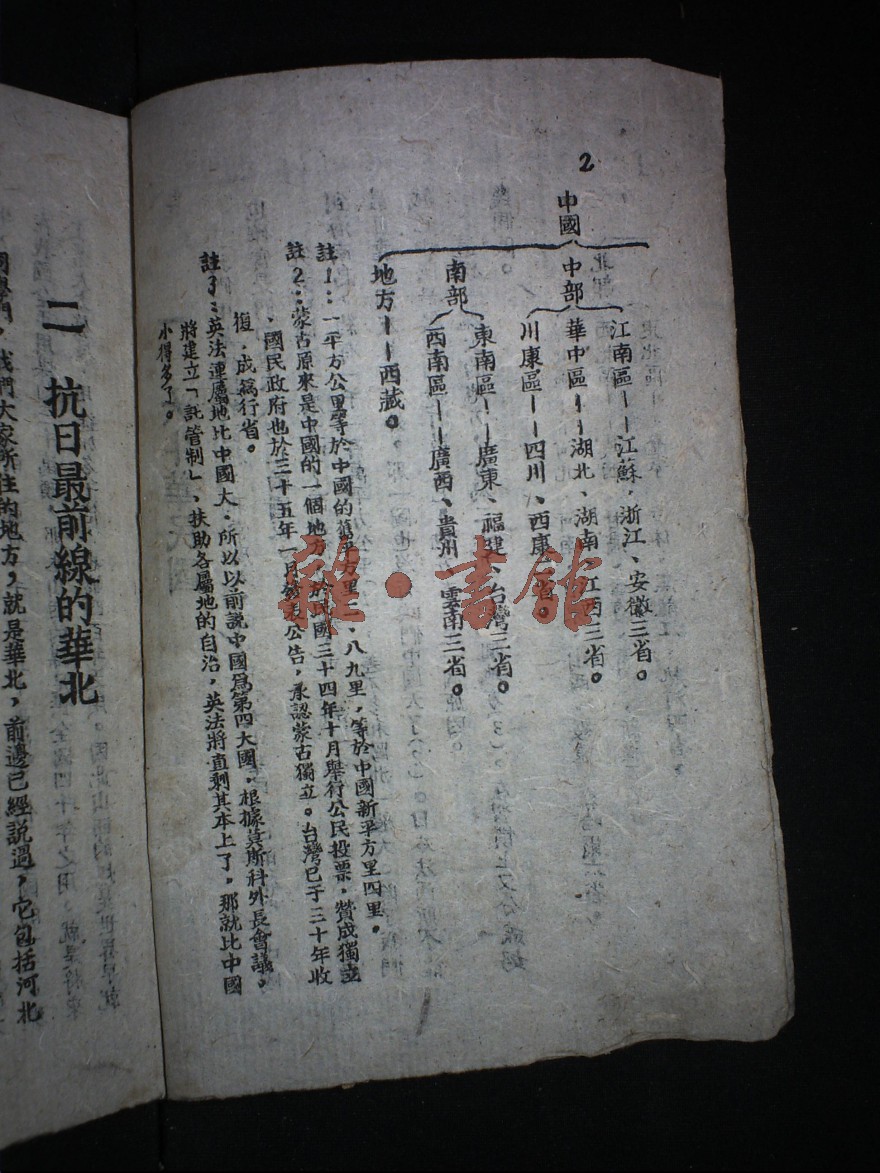 2
中國
中部
江南區——江蘇、浙江、安徽三省。
華中區——湖北、湖南、江西三省。
川康區——四川、西康二省。
南部
東南區——廣東、福建、台灣三省。
西南區——廣西、貴州、雲南三省。
地方——西藏。
註1：一平方公里等於中國的舊平方里三、八九里，等於中國新平方里四里。
註2：蒙古原來是中國的一個地方，於民國三十四年十月舉行公民投票，贊成獨立
，國民政府也於三十五年一月發表公告，承認蒙古獨立。台灣已于三十年收
復，成爲行省。
註3：英法連屬地比中國大，所以以前說中國爲第四大國，根據莫斯科外長會議，
將建立「託管制」、扶助各屬地的自治，英法將直剩其本土了，那就比中國
小得多了。
二 抗日最前線的華北
同學們，我們大家所住的地方，就是華北，前邊已經說過，它包括河北
雜·書館